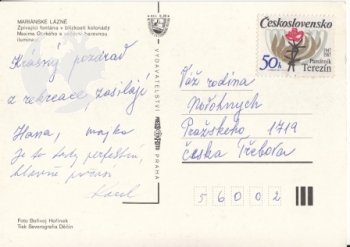 MARIÁNSKÉ LÁZNĚ
Zpívající fontána v blízkosti kolonády
Maxima Gorkého s barevnou
Krásný pozdrav
z rekreace zasílají
Hana,
Je to tady perfektní,
hlavně
Karel
Foto Bořivoj Hořínek
Tisk Severografia Děčín
VYDAVATELSTVÍ
PRAHA
Československo
50h
Památník
Terezín
Váž rodina
Pražského 1719
Česká Třebová
56002